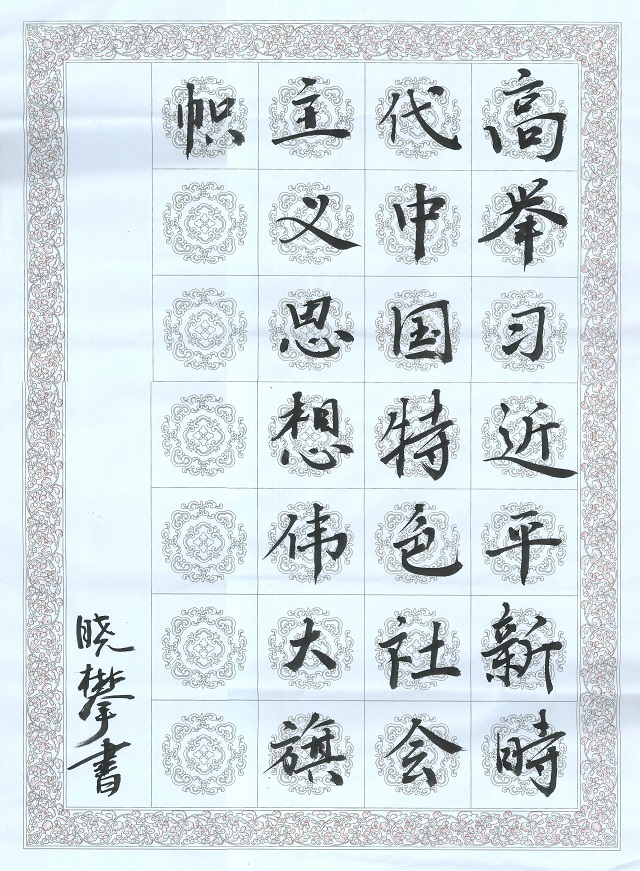 高举习近平新時
代中国特色社会
主义思想伟大旗
帜
晓攀書